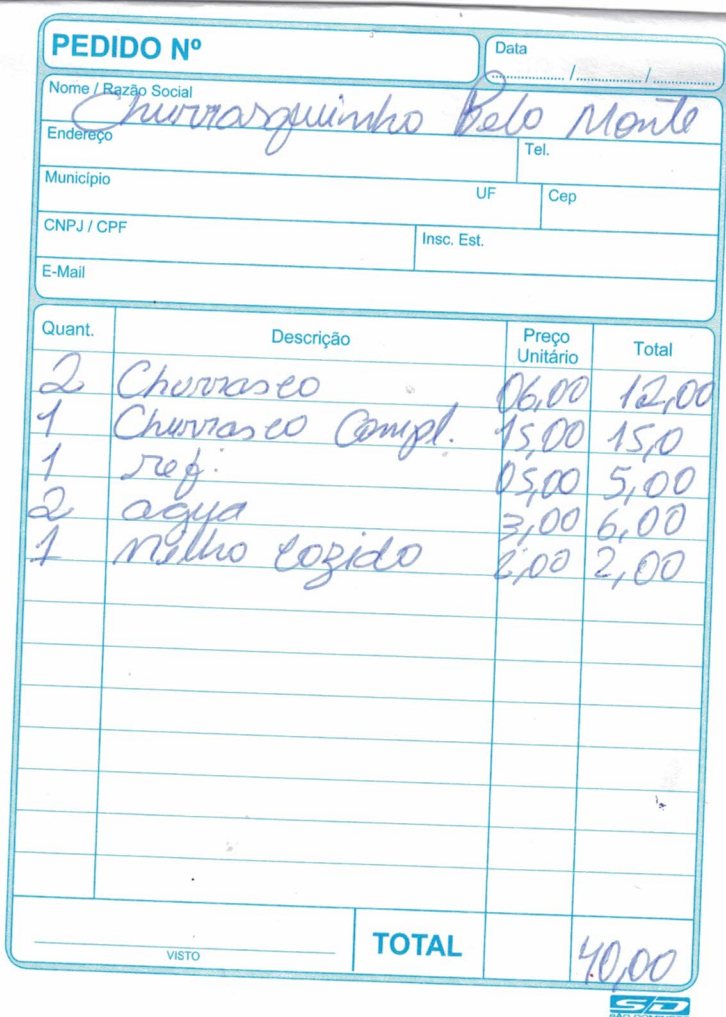 PEDIDO Nº
Data
/ /
Nome / Razão Social
Churrasquinho Belo Monte
Endereço
Tel.
Município UF Cep
CNPJ / CPF
Insc. Est.
E-Mail
Quant. Descrição Preço Unitário Total
2 Churrasco 06,00 12,00
1 Churrasco Compl. 15,00 15,0
1 ref. 05,00 5,00
2 agua 3,00 6,00
1 milho cozido 2,00 2,00
VISTO
TOTAL 40,00
SD
SÃO DOMINGOS